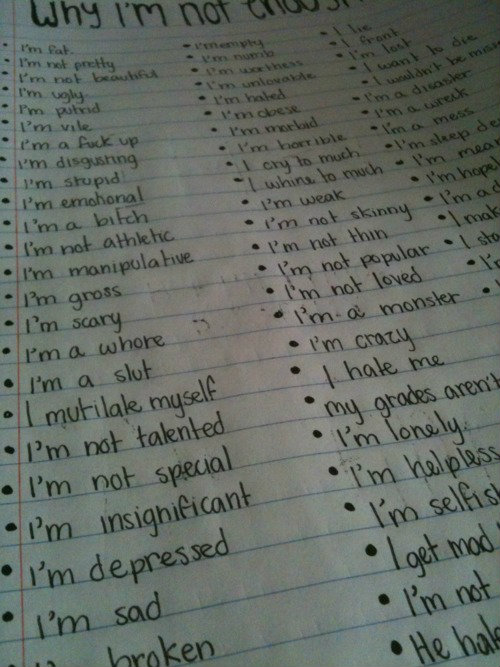 Why I'm not
• I'm fat.
• I'm not pretty
• I'm not beautiful
• I'm ugly
• I'm putrid
• I'm vile
• I'm a fuck up
• I'm disgusting
• I'm stupid
• I'm emotional
• I'm a bitch
• I'm not athletic
• I'm manipulative
• I'm gross
• I'm scary
• I'm a whore
• I'm a slut
• I mutilate myself
• I'm not talented
• I'm not special
• I'm insignificant
• I'm depressed
• I'm sad
broken
• I'm empty
• I'm numb
• I'm worthless
• I'm unlovable
• I'm hated
• I'm obese
• I'm morbid
• I'm horrible
• I cry to much
• I whine to much
• I'm weak
• I'm not skinny
• I'm not thin
• I'm not popular
• I'm not loved
• I'm a monster
• I'm crazy
• I hate me
• my grades aren't
• I'm lonely
• I'm helpless
• I'm selfis
• I get mad
• I'm not
• He hate
• I lie
• I
• I'm lost
• I want to die
• I wouldn't be
• I'm a disaster
• I'm a wreck
• I'm a mess
• I'm sleep
• I'm mean
• I'm hope
• I'm a
• I mak